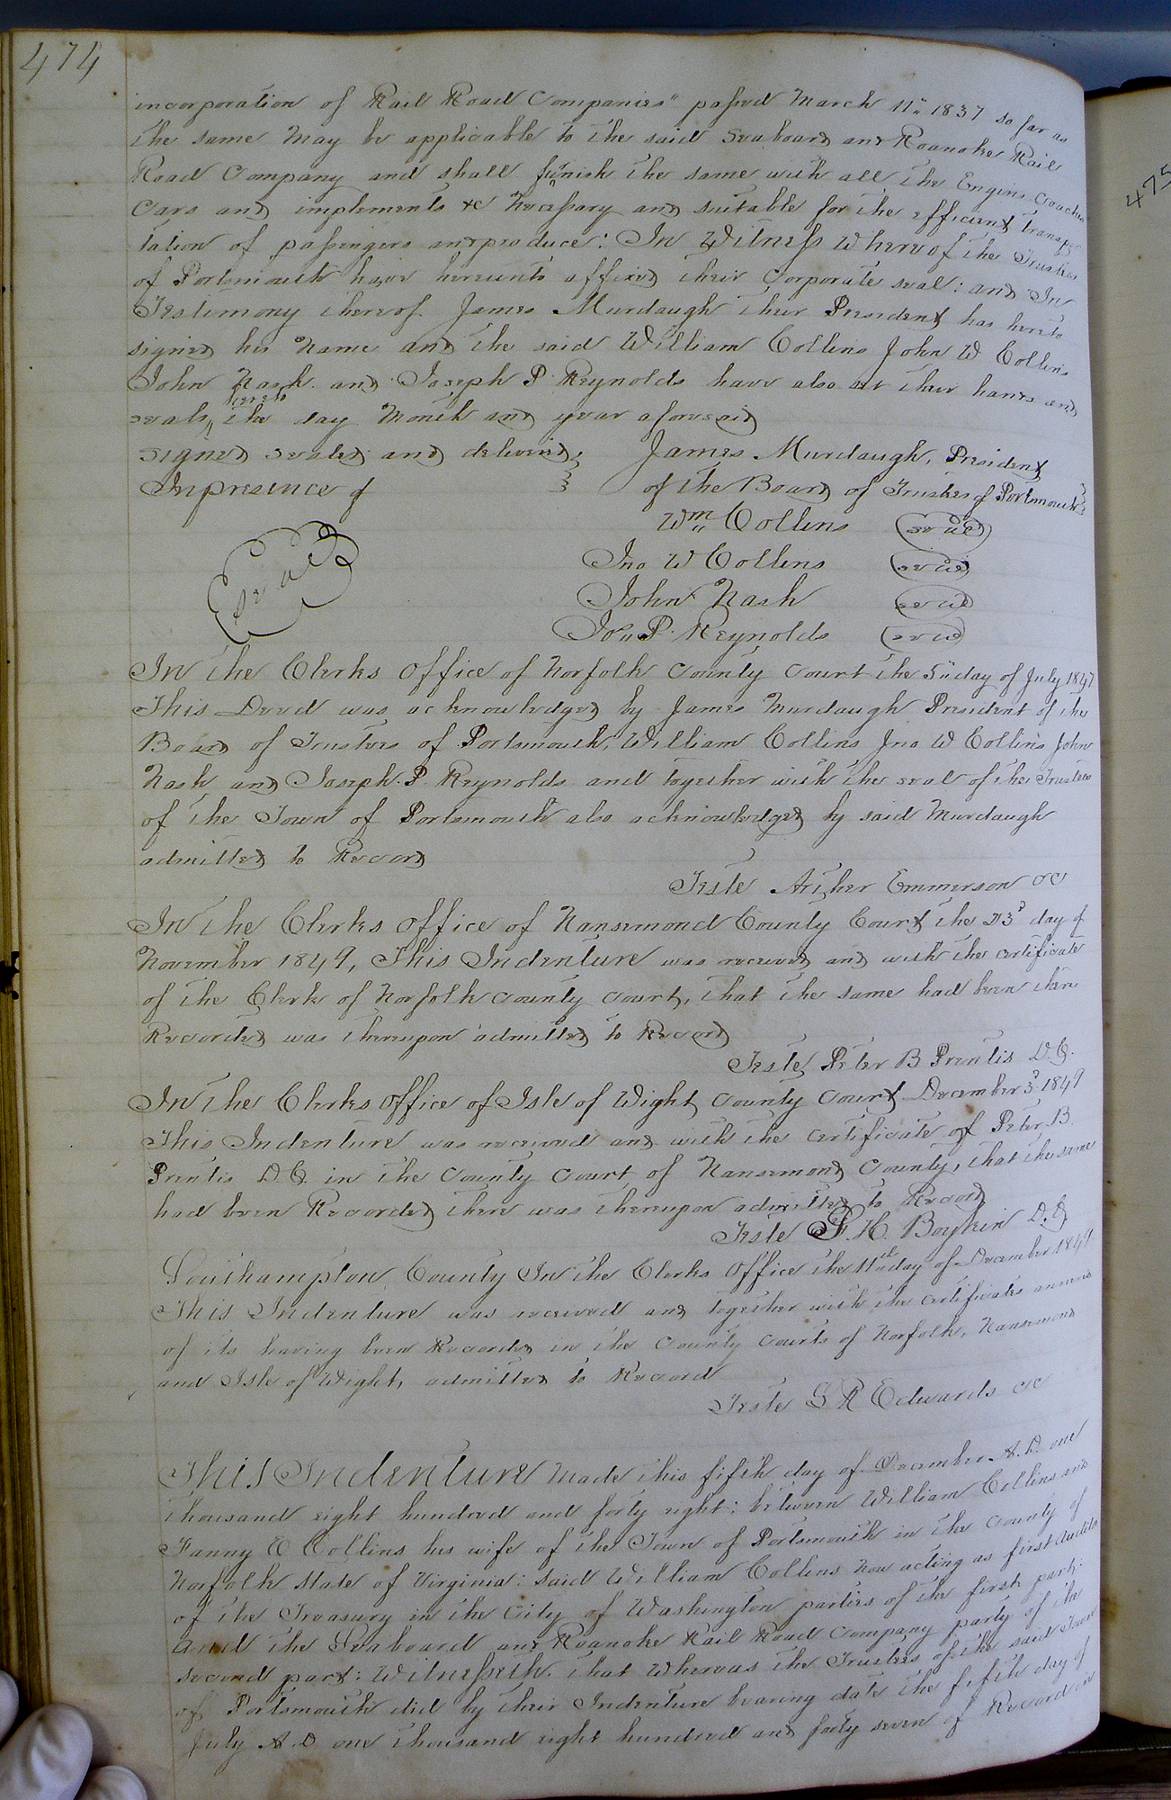 474
incorporation of Rail Road Companies" passed March 11" 1837 so far as
the same may be applicable to the said Seaboard and Roanoke Rail
Road Company and shall furnish the same with all the Engins Coaches
Cars and implements &c Necessary and suitable for the efficient transpor
tation of passingers and produce: In Witness Whereof the Trustees
of Portsmouth have hereunto affixed their Corporate seal: and In
Testimony thereof James Murdaugh their President has hereto
signed his Name and the said William Collins John W Collins
John Nash and Joseph P. Reynolds have also set their hands and
seals hereto the day Month and year aforesaid
signed sealed and delivered
Inpresence of
James Murdaugh, President
of the Board of Trustees of Portsmouth
Wm Collins (seal)
Jno W Collins (seal)
John Nash (seal)
Jos. P. Reynolds (seal)
Seal
In the Clerks Office of Norfolk County Court the 5" day of July 1847
This Deed was acknowledged by James Murdaugh President of the
Board of Trustees of Portsmouth, William Collins Jno W Collins John
Nash and Joseph P. Reynolds and together with the seal of the Trustees
of the Town of Portsmouth also acknowledged by said Murdaugh
admitted to Record
Teste Arther Emmerson CC
In the Clerks Office of Nansemond County Court the 23d day of
November 1849, This Indenture was received and with the certificate
of the Clerk of Norfolk County Court, that the same had been there
Recorded was thereupon admitted to Record
Teste, Peter B Prentis D.C.
In the Clerks office of Isle of Wight County Court December 3d 1849
This Indenture was received and with the Certificate of Peter B.
Prentis D.C. in the County Court of Nansemond County, that the same
had been Recorded there was thereupon admitted to Record
Teste F. H. Boykin D.C.
Southampton County In the Clerks Office the 11th day of December 1849
This Indenture was received and together with the Certificates annexed
of its having been Recorded in the County Courts of Norfolk, Nansemond
and Isle of Wight, admitted to Record
Teste L R Edwards CC
This Indenture Made this fifth day of December A.D. one
thousand eight hundred and forty eight: between William Collins and
Fanny E Collins his wife of the Town of Portsmouth in the County of
Norfolk State of Virginia: said William Collins Now acting as first Auditor
of the Treasury in the City of Washington parties of the first part:
And the Seaboard and Roanoke Rail Road Company party of the
second part: Witnesseth. That Whereas the Trustees of the said Town
of Portsmouth did by their Indenture bearing date the fifth day of
July A.D one thousand eight hundred and forty seven of Record in
475